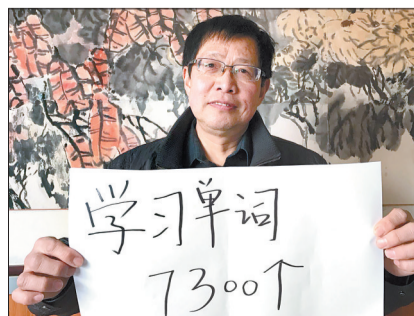 学习单词
7300个